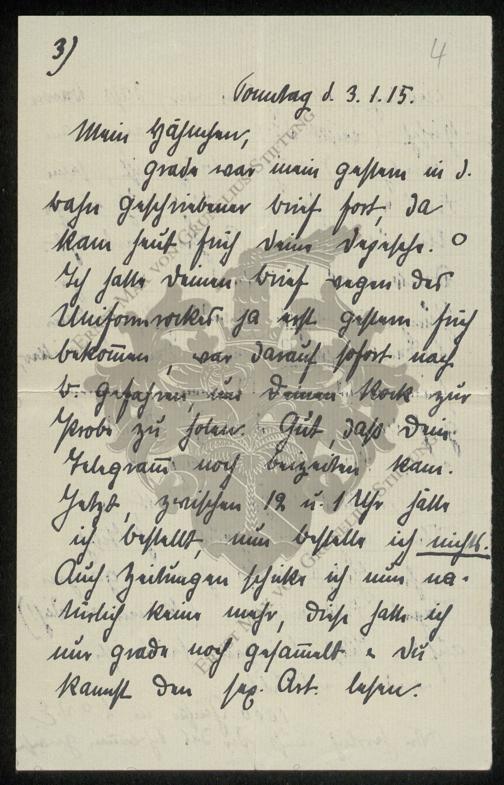 3)
4
Sonntag d. 3.1.15.
Mein Hähnchen,
grade war mein gestern in d.
Bahn geschriebener Brief fort, da
kam heut früh Deine Depesche. O
Ich hatte Deinen Brief wegen des
Uniformrockes ja erst gestern früh
bekommen, war darauf sofort nach
B. gefahren, um Deinen Rock zur
Probe zu holen. Gut, daß Dein
Telegramm noch beizeiten kam.
Jetzt, zwischen 12 u. 1 Uhr hätte
ich bestellt, nun bestelle ich nichts.
Auch Zeitungen schicke ich nun na-
türlich keine mehr, diese hatte ich
nur grade noch gesammelt u. Du
kannst den Art. lesen.
ERNST MAX VON GRUNELIUS-STIFTUNG
ERNST MAX VON GRUNELIUS-STIFTUNG